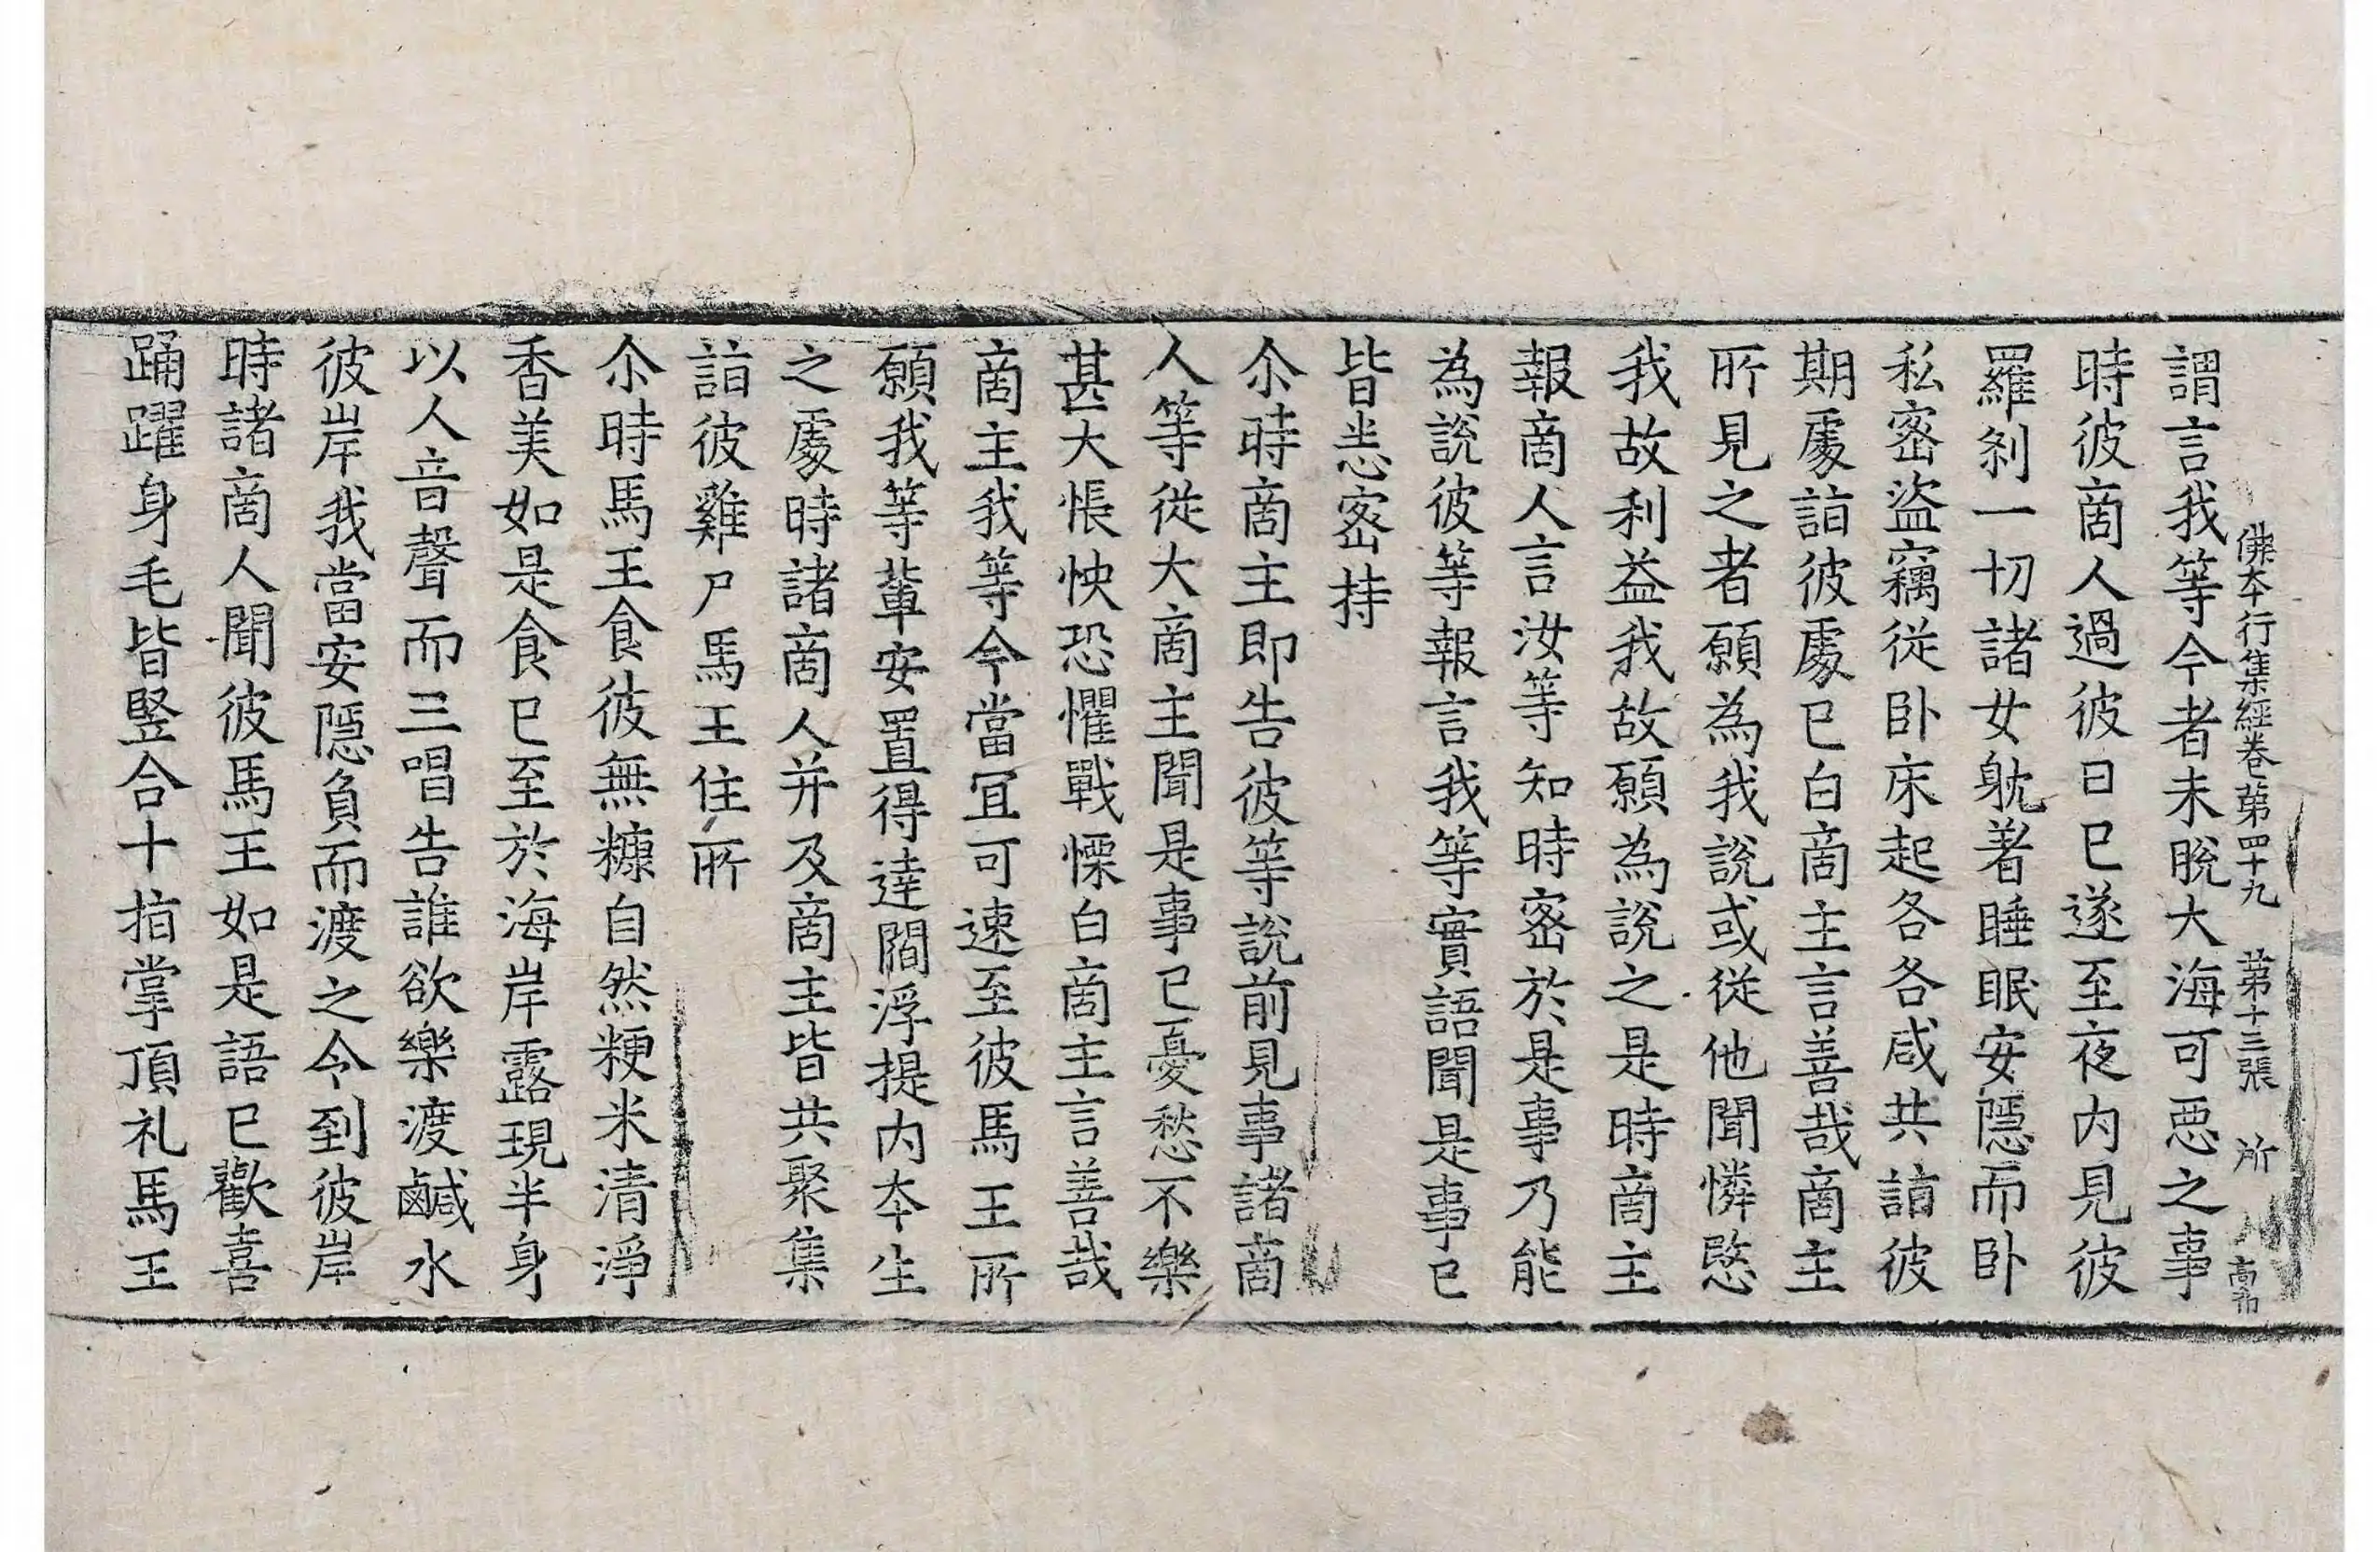 佛本行集經卷第四十九　第十三張　所
謂言我等今者未脫大海可惡之事
時彼啇人過彼日已遂至夜内見彼
羅刹一切諸女躭著睡眠安隱而卧
私密盜竊從卧床起各各咸共詣彼
期處詣彼處已白啇主言善哉啇主
所見之者願為我說或從他聞憐愍
我故利益我故願為說之是時啇主
報啇人言汝等知時密於是事乃能
為說彼等報言我等實語聞是事已
皆悉密持
尒時啇主即告彼等說前見事諸啇
人等從大啇主聞是事已憂愁不樂
甚大悵怏恐懼戰慄白啇主言善哉
啇主我等今當冝可速至彼馬王所
願我等軰安置得達閻浮提内本生
之處時諸啇人并及啇主皆共聚集
詣彼雞尸馬王住所
尒時馬王食彼無糠自然粳米清淨
香美如是食已至於海岸露現半身
以人音聲而三唱告誰欲樂渡鹹水
彼岸我當安隱負而渡之令到彼岸
時諸啇人聞彼馬王如是語已歡喜
踊躍身毛皆竪合十指掌頂礼馬王